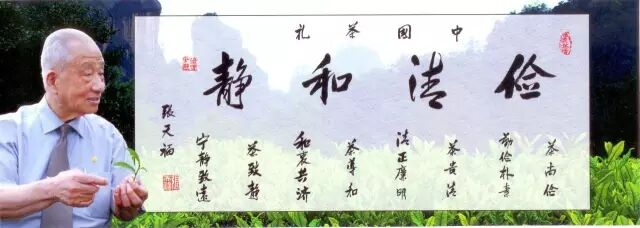 中國茶礼
俭清和静
茶尚俭
勤俭朴素
茶贵清
清正廉明
茶導和
和衷共济
茶致静
宁静致遠
张天福